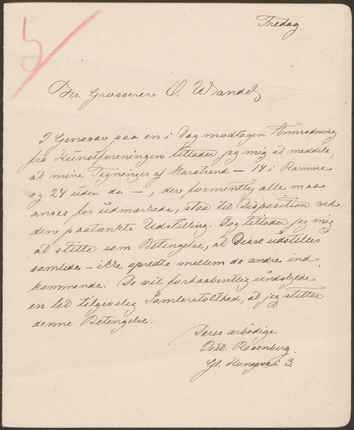 Fredag
5
Hr. Grosserer O. Wandel,
I Genswar paa en i Dag modtagen Anmodning
fra Kunstforeningen tillader jeg mig at meddele,
at mine Tegninger af Marstrand – 14 i Ramme
og 24 uden do –, der formentlig alle maa
ansees for udmærkede, staa til Disposition ved
den paatænkte Udstilling. Dog tillader jeg mig
at stille som Betingelse, at Disse udstilles
samlede – ikke spredte mellem de andre ind-
kommende. De vil forhaabentlig undskylde
en lidt tilgivelig Samlerstolthed, at jeg stiller
denne Betingelse.
Deres ærbødige
Rosenberg.
Gl. Kongevei 3.